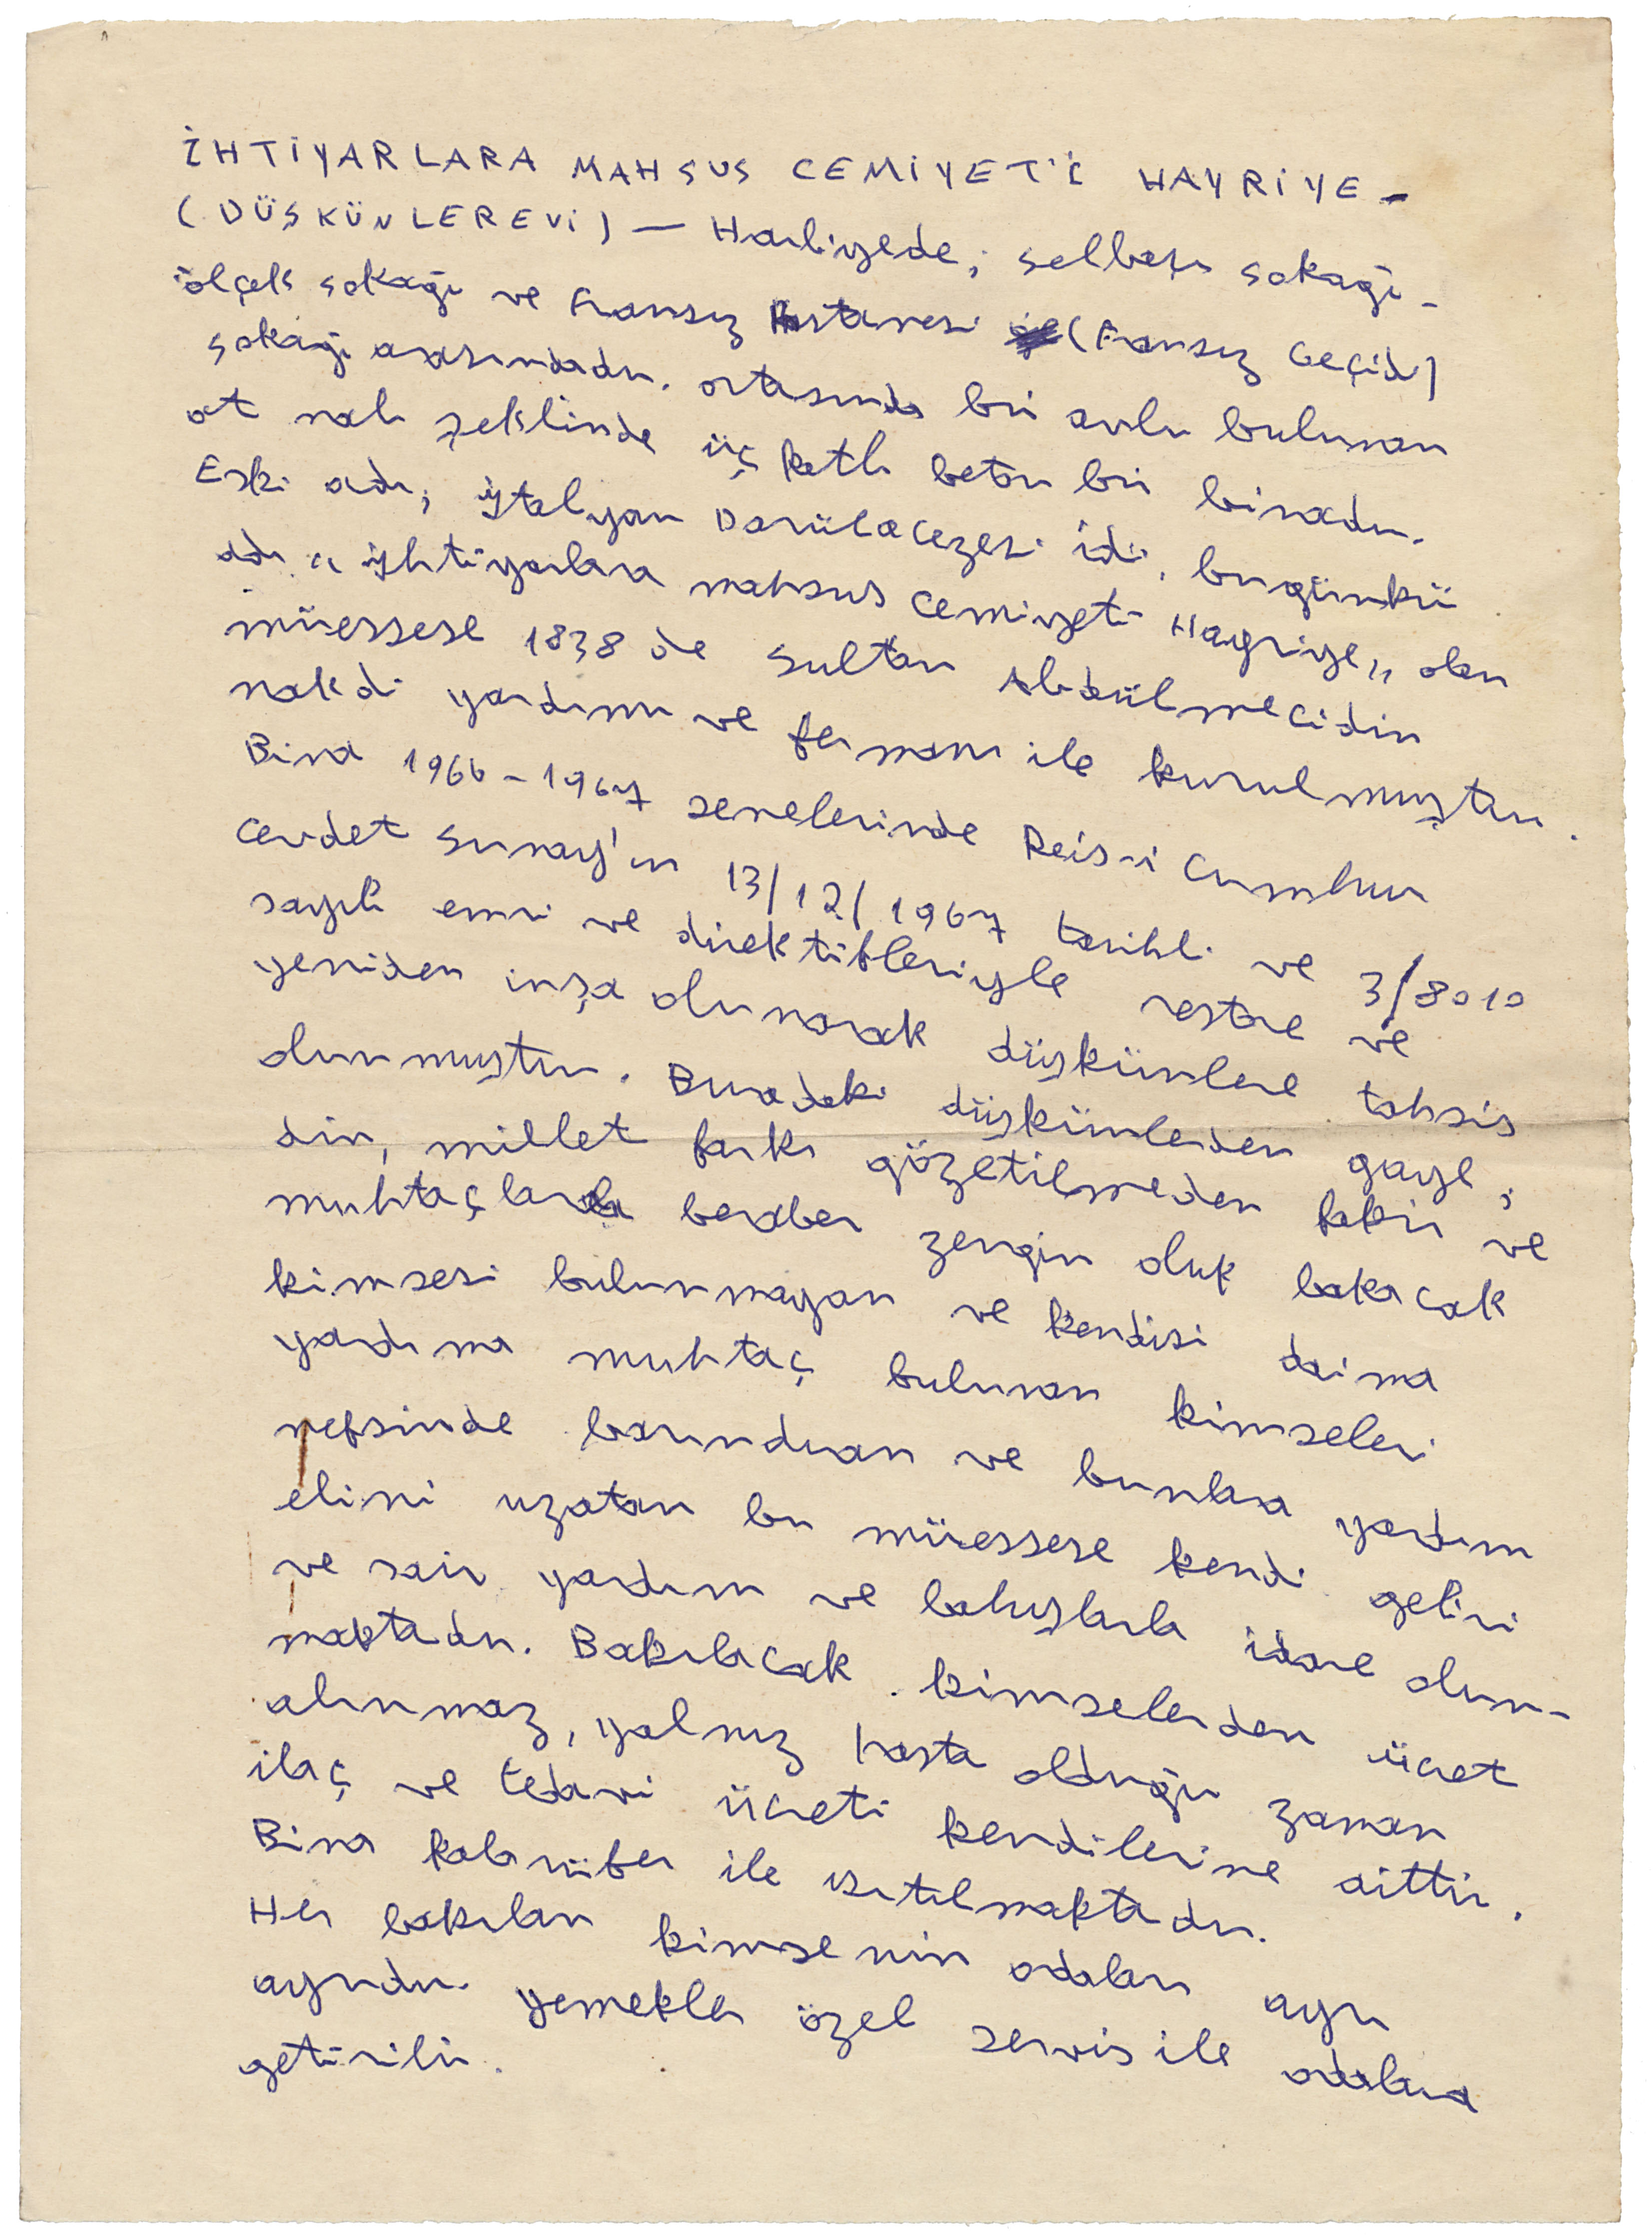 İHTİYARLARA MAHSUS CEMİYET'İ HAYRİYE -
(DÜŞKÜNLEREVİ) — Harbiyede, selbaşı sokağı -
ölçek sokağı ve Fransız Hastanesi (Fransız Geçidi)
sokağı arasındadır. ortasında bir avlu bulunan
at nalı şeklinde üç katlı beton bir binadır.
Eski adı, İtalyan Darülacezesi idi, bugünkü
adı "İhtiyarlara mahsus Cemiyeti Hayriye" olan
müessese 1838 de Sultan Abdülmecidin
nakdi yardımı ve fermanı ile kurulmuştur.
Bina 1966-1967 senelerinde Reis-i Cumhur
Cevdet Sunay'ın 13/12/1967 tarihli ve 3/8010
sayılı emri ve direktifleriyle restore ve
yeniden inşa olunarak düşkünlere tahsis
olunmuştur. Buradaki düşkünlerden gaye,
din, millet farkı gözetilmeden fakir ve
muhtaçlarla beraber zengin olup bakacak
kimsesi bulunmayan ve kendisi daima
yardıma muhtaç bulunan kimseleri
nefsinde barındıran ve bunlara yardım
elini uzatan bu müessese kendi geliri
ve sair yardım ve bahışlarla idare olun-
maktadır. Bakılacak kimselerden ücret
alınmaz, yalnız hasta olduğu zaman
ilaç ve tedavi ücreti kendilerine aittir.
Bina kalörüfer ile ısıtılmaktadır.
Her bakılan kimsenin odaları ayrı
ayrıdır. yemekler özel servis ile odalara
getirilir.